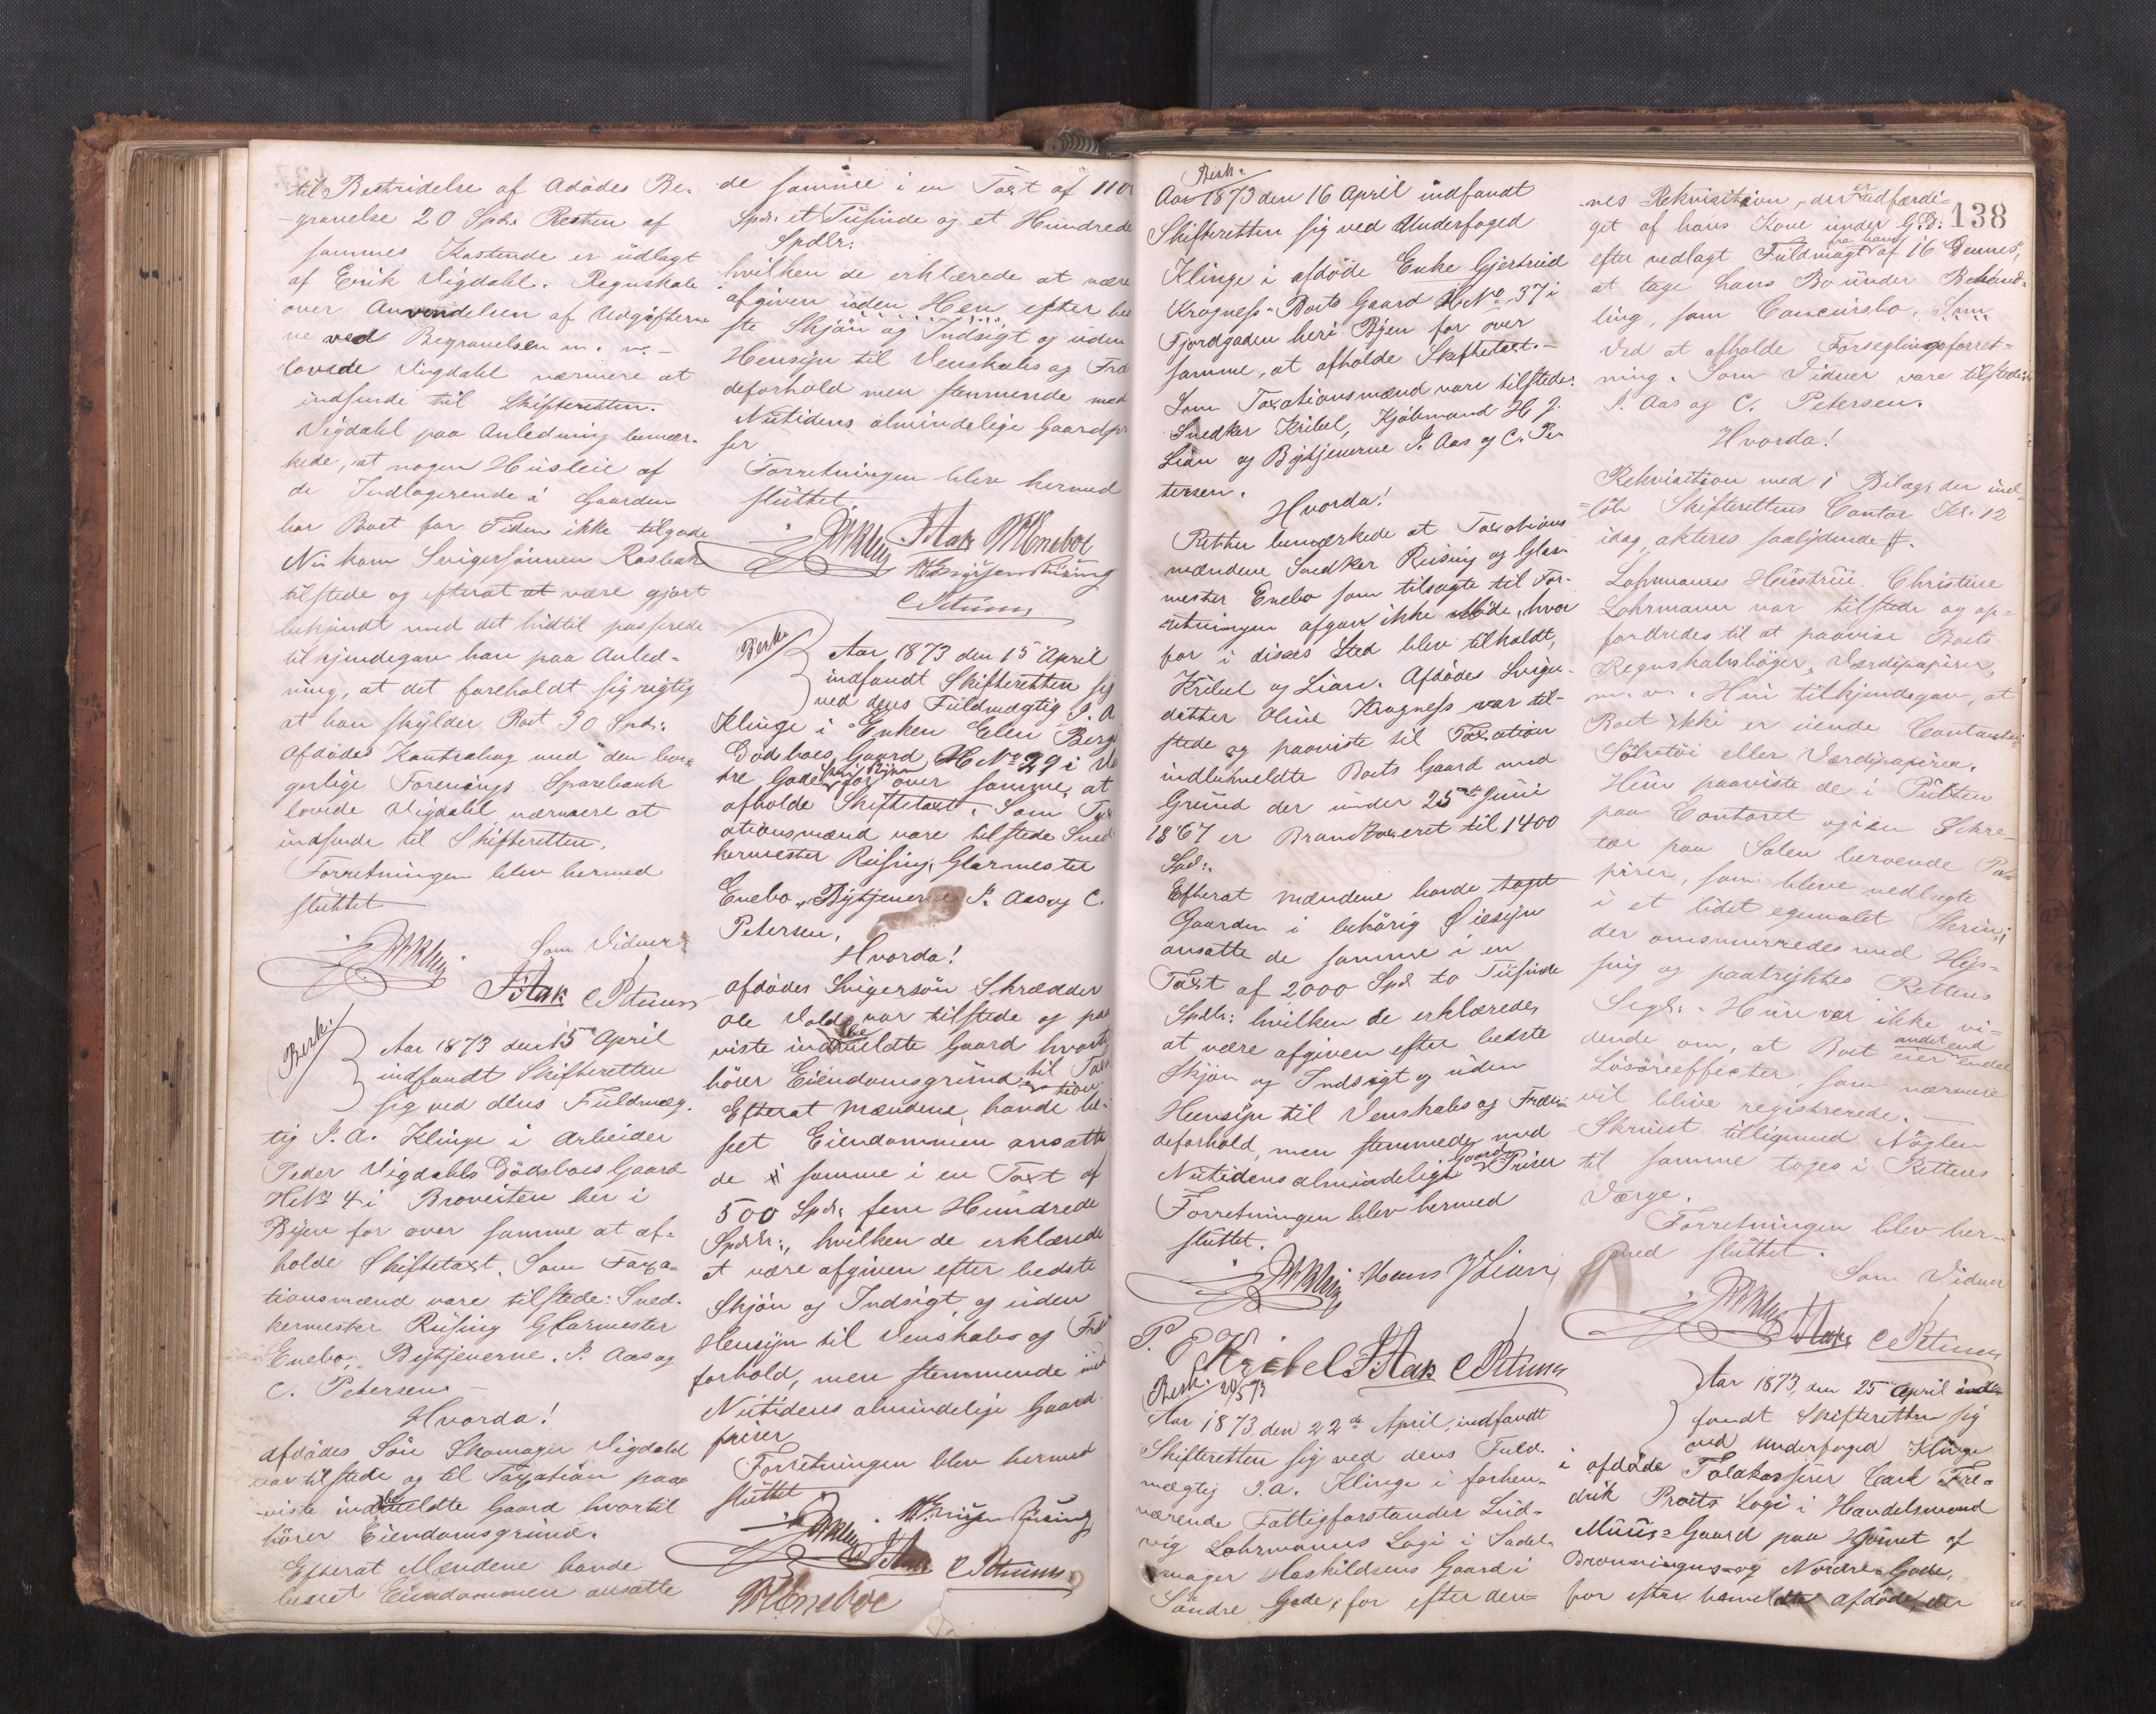 til Bestridelse af Adödes Be-
gravelse 20 Spd: Resten af
sammes Kostende er udlagt
af Erik Vigdahl. Regnskab
over Anvendelsen af Udgifterne
ved Begravelsen m. v. -
lovede Vigdahl nærmere at
indsende til Skifteretten.
Vigdahl paa Anledning bemær-
kede, at nogen Husleie af
de Indlogerende i Gaarden
har Boet for Tiden ikke tilgode
Nu kom Svigersönnen Rosbak
tilstede og efterat at være gjort
bekjendt med det hidtil passerede
tilkjendegav han paa Anled-
ning, at det foreholdt sig rigtig
at han skylder Boet 30 Spd:
Afdödes Kontrabog med den bor-
gerlige Forenings Sparebank
lovede Vigdahl nærmere at
indsende til Skifteretten.
Forretningen blev hermed
sluttet
Som Vidner
J. Aas C Petersen
Besk.
Aar 1873 den 15 April
indfandt Skifteretten
sig ved dens Fuldmæg-
tig J. A. Klinge i Arbeider
Peder Vigdahls Dödsboes Gaard
H No 4 i Broveiten her i
Byen for over samme at af-
holde Skiftetaxt. Som Taxa-
tionsmænd vare tilstede: Sned-
kermester Rüsing Glarmester
Enebo, Bytjenerne J. Aas og
C. Petersen -
Hvorda!
Afdödes Sön Skomager Vigdahl
var tilstede og til Taxation paa-
viste indbemeldte Gaard hvortil
hörer Eiendomsgrund.
Efterat Mændene havde
beseet Eiendommen ansatte
de samme i en Taxt af 1100
Spd: et Tusinde og et Hundrede
Spdlr:
hvilken de erklærede at være
afgiven uden Hen efter bed
ste Skjön og Indsigt og uden
Hensyn til Venskabs og Fred
deforhold men stemmende med
Nutidens almindelige Gaardpri
ser
Forretningen blev hermed
sluttet.
J. Aas Eneboe
Rüsing
C Petersen
Besk.
Aar 1873 den 15 April
indfandt Skifteretten sig
ved dens Fuldmægtig J. A
Klinge i Enken Elen Bergs
Dödsboes Gaard H No 29 i
tre Gade her i Byen for over samme, at
afholde Skiftetaxt. Som Tax
ationsmænd vare tilstede Sned
kermester Rüsing, Glarmester
Enebo, Bytjenerne J. Aas og C.
Petersen.
Hvorda!
Afdödes Svigersön Skrædder
Ole Vold var tilstede og paa
viste indbemeldte Gaard hvortil
hörer Eiendomsgrund til Taxa
tion.
Efterat Mændene havde be-
seet Eiendommen ansatte
de samme i en Taxt af
500 Spd: fem Hundrede
Spdlr:, hvilken de erklærede
at være afgiven efter bedste
Skjön og Indsigt og uden
Hensyn til Venskabs og Fred
forhold, men stemmende med
Nutidens almindelige Gaard-
priser
Forretningen blev hermed
sluttet
Rüsing
J. Aas C Petersen
Eneboe
Besk.
Aar 1873 den 16 April indfandt
Skifteretten sig ved Underfoged
Klinge i afdöde Enke Gjertrud
Krogness Boets Gaard H No 37 i
Fjordgaden heri Byen for over
samme, at afholde Skiftetaxt. -
Som Taxationsmænd vare tilstede:
Snedker Kribel, Kjöbmand H J.
Lian og Bytjenerne J. Aas og C. Pe-
tersen.
Hvorda!
Retten bemærkede at Taxations
mændene Snedker Rüsing og Glar-
mester Enebo som tilsagte til For-
retningen afgav ikke Möde, hvor
for i disses Sted blev tilholdt,
Kribel og Lian. Afdödes Sviger-
datter Oline Krogness var til-
stede og paaviste til Taxation
indbemeldte Boets Gaard med
Grund der under 25de Juni
1867 er Brandtaxeret til 1400
Spd:
Efterat Mændene havde taget
Gaarden i behörig Öiesyn
ansatte de samme i en
Taxt af 2000 Spd to Tusinde
Spdlr: hvilken de erklærede,
at være afgiven efter bedste
Skjön og Indsigt og uden
Hensyn til Venskabs og Fræn-
deforhold, men stemmede med
Nutidens almindelige Gaard-Priser
Forretningen blev hermed
sluttet.
Hans J Lian
Kribel J. Aas C Petersen
Besk. 20/5 73
Aar 1873 den 22de April, indfandt
Skifteretten sig ved dens Fuld-
mægtig J. A. Klinge i forhen-
værende Fattigforstander Lud-
vig Lohrmanns Logi i Sadel-
mager Haskildsens Gaard i
Söndre Gade, for efter den-
138
nes Rekvisition, der er udfærdi-
get af hans Kone under G.D:
efter vedlagt Fuldmagt fra ham af 16 Dennes,
at tage hans Bo under Behand-
ling, som Concursbo, Som
Ved at afholde Forseglingsforret-
ning. Som Vidner vare tilstede
J. Aas og C. Petersen.
Hvorda!
Rekvisition med 1 Bilag, der ind-
löb Skifterettens Contor Kl. 12
idag, akteres saalydende #.
Lohrmanns Hustrue Christine
Lohrmann var tilstede og op-
fordredes til at paavise Boets
Regnskabsböger, Værdipapirer,
m. v. Hun tilkjendegav, at
Boet ikke er iiende Contanter
Sölvtöi eller Værdipapirer.
Hun paaviste de i Pulten
paa Contoret og i en Sekre-
tær paa Salen beroende Pa-
pirer, som bleve nedlagte
i et lidet egemalet Skrin,
der omsnurredes med Hys-
sing og paatryktes Rettens
Segl. Hun var ikke vi-
dende om, at Boet eier andet end endel
Lösöreeffecter, som nærmere
vil blive registrerede. -
Skrinet tilligemed Nöglen
til samme toges i Rettens
Værge.
Forretningen blev her-
med sluttet.
Som Vidner
J. Aas C Petersen
Aar 1873, den 25 April ind-
fandt Skifteretten sig
ved Underfoged Klinge
i afdöde Toldkasserer Carl Fre-
drik Proits Logi i Handelsmand
Müüs's Gaard paa Hjörnet af
Dronningens- og Nordre-Gade,
for efter bemeldte Afdöde, der